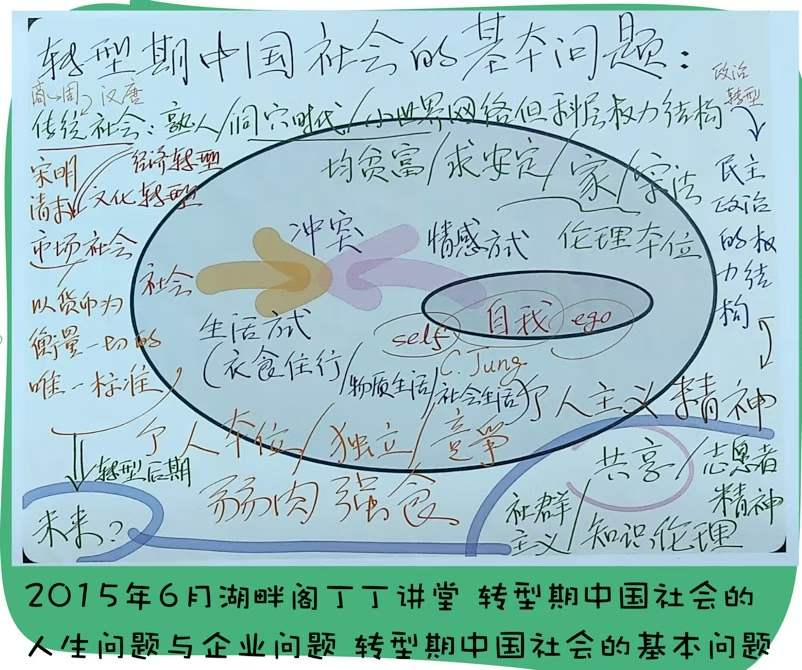 转型期中国社会的基本问题：
商→周→汉唐
政治
转型
传统社会：熟人/洞穴时代/小世界网络但科层权力结构
宋明
清末
经济转型
文化转型
市场社会
以货币为
衡量一切的
唯一标准
均贫富/求安定/家/宗法
伦理本位
民主
政治
的权
力结
构
冲突
情感方式
社会
生活方式
(衣食住行/物质生活/社会生活)
self
自我
ego
C. Jung
个人主义精神
个人本位/独立/竞争
弱肉强食
转型后期
未来？
共享/志愿者
精神
社群
主义/知识伦理
2015年6月湖畔阁丁丁讲堂 转型期中国社会的
人生问题与企业问题 转型期中国社会的基本问题